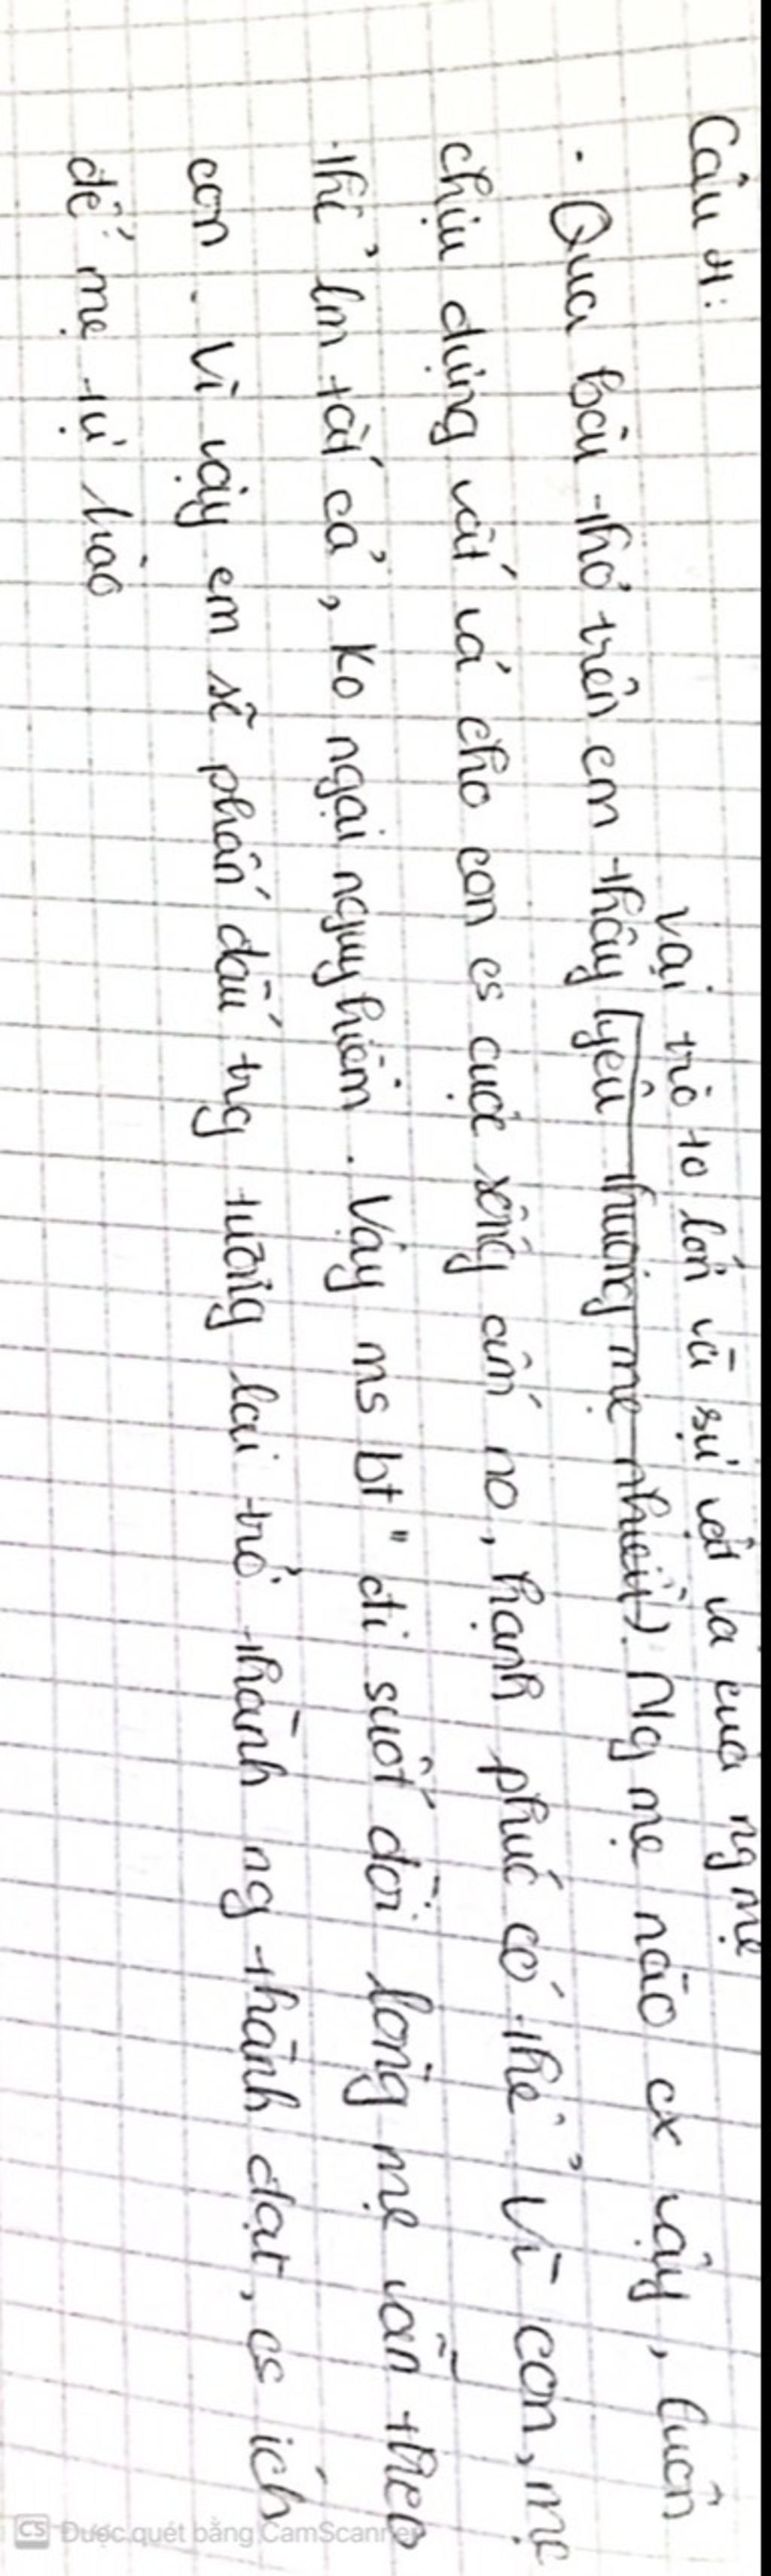 Câu 4:
vai trò to lớn và sự vất vả của ng mẹ
- Qua bài thơ trên em thấy (yêu thương mẹ nhiều). Ng mẹ nào cx vậy, luôn
chịu đựng vất vả cho con cs cuộc sống ấm no, hạnh phúc có thể. Vì con, mẹ
thể lm tất cả, ko ngại nguy hiểm. Vậy ms bt "đi suốt đời lòng mẹ vẫn theo
con. Vì vậy em sẽ phấn đấu trg tương lai trở thành ng thành đạt, cs ích
để mẹ tự hào
CS Được quét bằng CamScanner